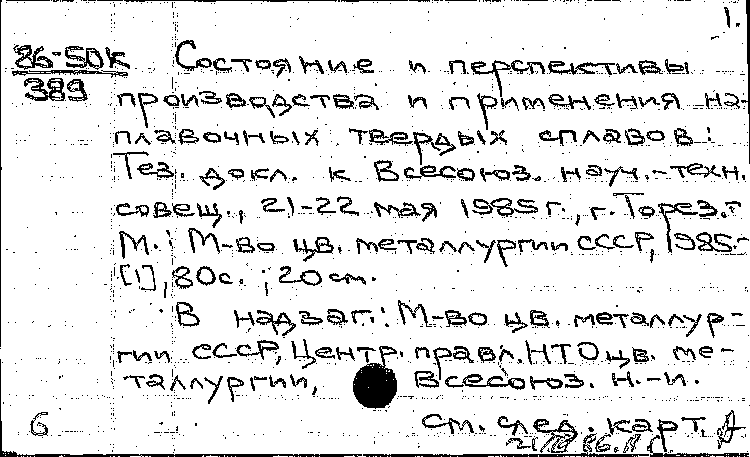 1.
86-50К
389
Состояние и перспективы
производства и применения на-
плавочных твердых сплавов:
Тез. докл. к Всесоюз. науч.-техн.
совещ., 21-22 мая 1985г., г. Торез.-
М.: М-во цв. металлургии СССР, 1985.-
[1], 80с. ; 20см.
В надзаг.: М-во цв. металлур-
гии СССР, Центр. правл. НТО цв. ме-
таллургии, Всесоюз. н.-и.
6 см. след. карт.